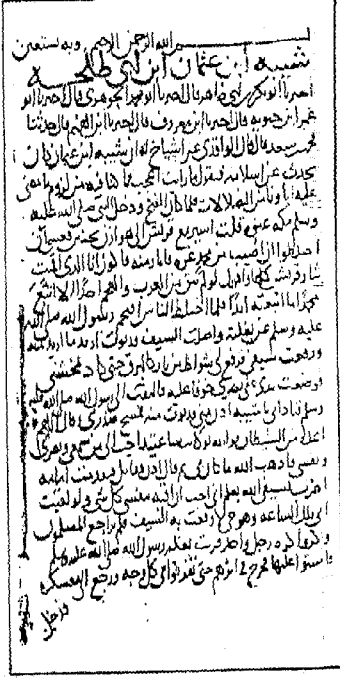 بسم الله الرحمن الرحيم وبه نستعين
شيبة ابن عثمان ابن ابي طلحة
اخبرنا ابو بكر بن ابي طاهر قال اخبرنا ابو محمد الجوهري قال اخبرنا ابو
عمر ابن حيويه قال اخبرنا ابن معروف قال اخبرنا ابن الفهم قال حدثنا
محمد بن سعد قال قال الواقدي عن اشياخ له ان شيبة ابن عثمان كان
يحدث عن اسلامه فيقول ما رايت اعجب مما كنا فيه من لزوم ما مضى
عليه اباونا من الضلالات فلما كان الفتح ودخل النبي صلى الله عليه
وسلم مكة عنوة قلت اسير مع قريش الى هوازن بحنين فعسى ان
اختلطوا ان اصيب من محمد غرة فاثار منه فاكون انا الذي قمت
بثار قريش كلها واقول لو لم يبق من العرب والعجم احد الا اتبع
محمدا ما اتبعته ابدا فلما اختلط الناس اقتحم رسول الله صلى الله
عليه وسلم عن بغلته واصلت السيف ودنوت اريد ما اريد منه
ورفعت سيفي فرفع لي شواظ من نار كالبرق حتى كاد يمحشني
فوضعت يدي على بصري خوفا عليه فالتفت الي رسول الله صلى الله عليه
وسلم فنادى يا شيبة ادن مني فدنوت منه فمسح صدري وقال اللهم
اعذه من الشيطان فوالله لهو كان ساعتئذ احب الي من سمعي وبصري
ونفسي واذهب الله ما كان بي ثم قال ادن فقاتل فتقدمت امامه
اضرب بسيفي الله يعلم اني احب ان اقيه بنفسي كل شي ولو لقيت
ابي تلك الساعة وهو حي لاوقعت به السيف فلم تراجع المسلمون
وكروا كرة رجل واحد قربت بغلة رسول الله صلى الله عليه وسلم
فاستوى عليها فخرج في اثرهم حتى تفرقوا في كل وجه ورجع الى معسكره
فدخل